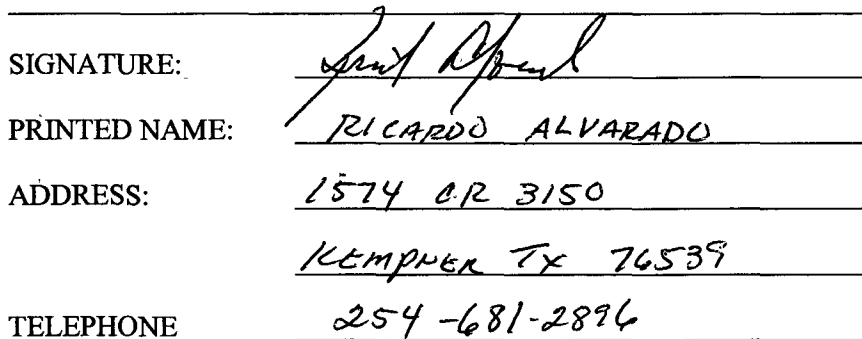 SIGNATURE:
PRINTED NAME: RICARDO ALVARADO
ADDRESS: 1574 CR 3150
KEMPNER TX 76539
TELEPHONE 254-681-2896